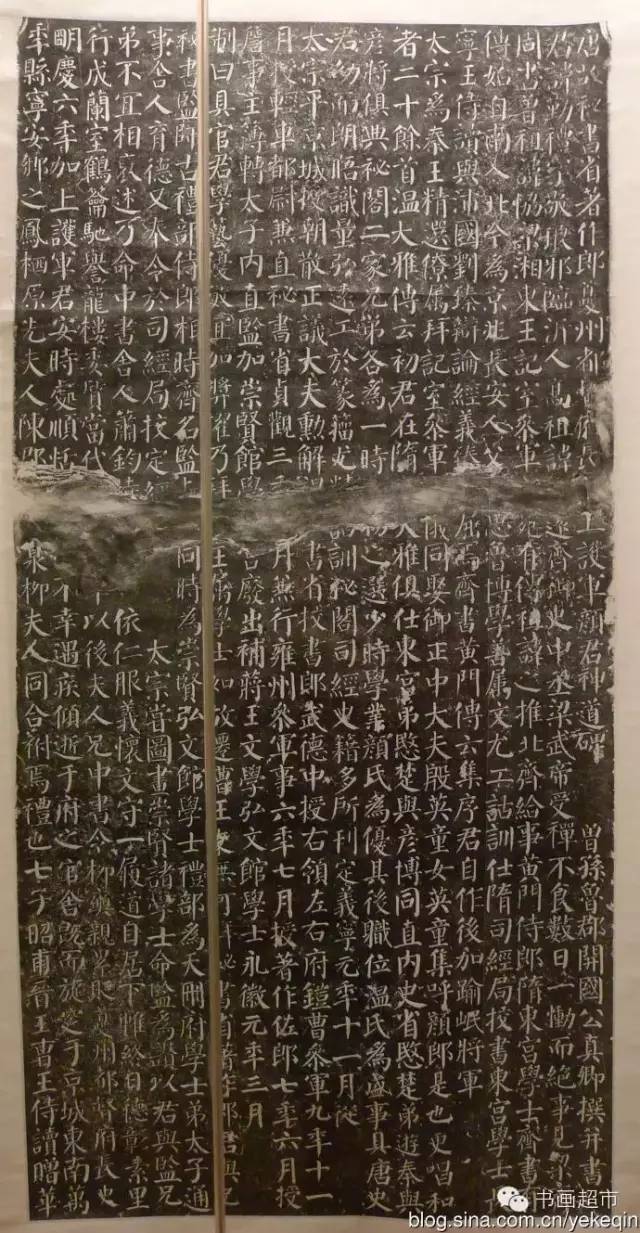 唐故秘書省著作郎夔州都督府長史上護軍顏君神道碑
曾孫魯郡開國公真卿撰并書
君諱勤禮字敬琅邪臨沂人高祖諱見遠齊御史中丞梁武帝受禪不食數日一慟而絕事見梁
周書曾祖諱協梁湘東王記室參軍文苑有傳祖諱之推北齊給事黃門侍郎隋東宮學士齊書有
傳始自南入北今為京兆長安人父諱思魯博學善屬文尤工詁訓仕隋司經局校書東宮學士長
寧王侍讀與沛國劉臻辯論經義臻屢屈焉齊書黃門傳云集序君自作後加踰岷將軍
太宗為秦王精選僚屬拜記室參軍儀同娶御正中大夫殷英童女英童集呼顏郎是也更唱和
者二十餘首溫大雅傳云初君在隋與大雅俱仕東宮弟愍楚與彥博同直內史省愍楚弟遊秦與
彥將俱典秘閣二家兄弟各為一時人物之選少時學業顏氏為優其後職位溫氏為盛事具唐史
君幼而朗晤識量弘遠工於篆籀尤精詁訓秘閣司經史籍多所刊定義寧元年十一月從
太宗平京城授朝散正議大夫勳解褐秘書省校書郎武德中授右領左右府鎧曹參軍九年十一
月授輕車都尉兼直秘書省貞觀三年六月兼行雍州參軍事六年七月授著作佐郎七年六月授
詹事主簿轉太子內直監加崇賢館學士宮廢出補蔣王文學弘文館學士永徽元年三月
制曰具官君學藝優敏宜加獎擢乃拜陳王屬學士如故遷曹王友無何拜秘書省著作郎君與兄
秘書監師古禮部侍郎相時齊名監與君同時為崇賢弘文館學士禮部為天冊府學士弟太子通
事舍人育德又奉令於司經局校定經史
太宗嘗圖畫崇賢諸學士命監為讚以君與監兄
弟不宜相褒述乃命中書舍人蕭鈞特讚
依仁服義懷文守一履道自居下帷終日德彰素里
行成蘭室鶴籥馳譽龍樓委質當代
年以後夫人兄中書令柳奭親累貶夔州都督府長史
明慶六年加上護軍君安時處順恬
不幸遇疾傾逝于府之官舍既而旋窆于京城東南萬
年縣寧安鄉之鳳栖原先夫人陳郡殷
泉柳夫人同合祔焉禮也七子昭甫晉王曹王侍讀贈華
书画超市
blog.sina.com.cn/yekeqin